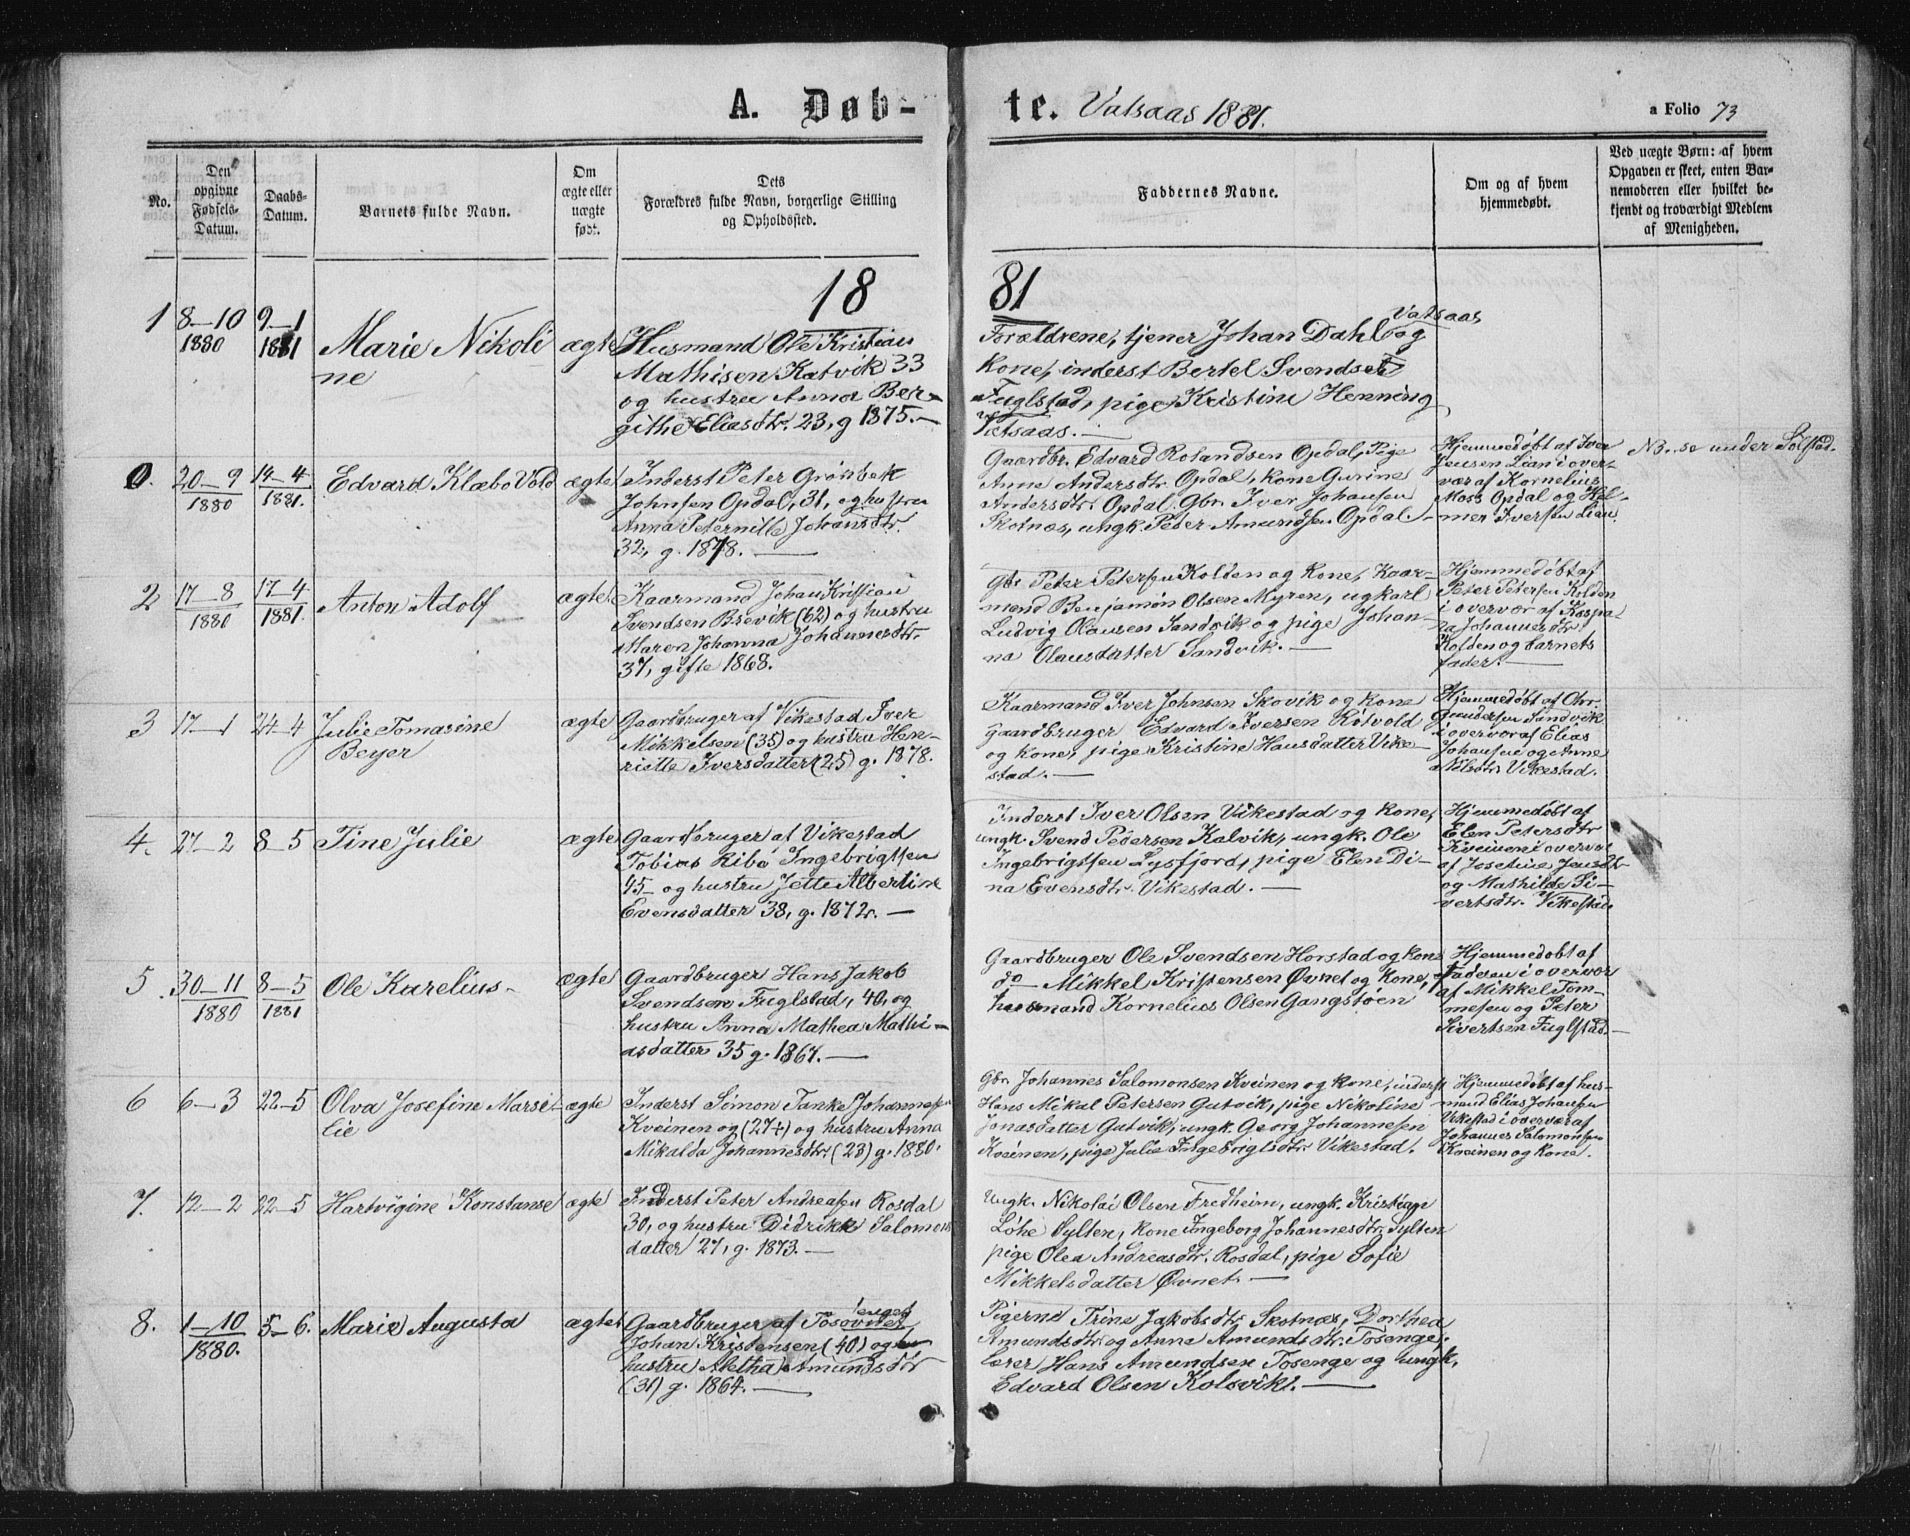 A. Døb- te. Vatsaas 1881. a Folio 73
No.
Den opgivne Fødsels-Datum.
Daabs-Datum.
Barnets fulde Navn.
Om ægte eller uægte født.
Dets Forældres fulde Navn, borgerlige Stilling og Opholdssted.
Faddernes Navne.
Om og af hvem hjemmedøbt.
Ved uægte Børn: af hvem Opgaven er skeet, enten Barnemoderen eller hvilket bekjendt og troværdigt Medlem af Menigheden.
18 81
1 8–10 1880 9–1 1881
Marie Nikoli
ne
ægte
Husmand Ole Kristian
Mathisen Katvik 33
og hustru Anna Ber-
githe Eliasdtr. 23, g 1875.—
Vatsaas
Forældrene, tjener Johan Dahl og
kone, inderst Bertel Svendsen
Fuglstad, pige Kristine Henning
Vatsaas.—
0. 20–9 1880 14–4 1881.
Edvard Klæbo Vold
ægte
Inderst Peter Grønbek
Johnsen Opdal, 31, og hustru
Anna Peternille Johansdtr.
32, g. 1878.—
Gaardbr. Edvard Rolandsen Opdal, Pige
Anne Andersdtr Opdal, kone Gurine
Andersdtr. Opdal. Gbr. Iver Johansen
Skotnæs, ungk. Peder Amundsen Opdal.
Hjemmedøbt af Iver
Jensen Lian i over-
vær af Kornelius
Moss Opdal og Hel-
mer Iversen Lian.
NB. se under Solstad.
2 17–8 1880 17–4 1881.
Anton Adolf
ægte
Kaarmand Johan Kristian
Svendsen Brevik (62) og hustru
Maren Johanna Johannesdtr.
37, gifte 1868.
Gbr Peter Petersen Kolden og kone, Kaar-
mend Benjamøn Olsen Myren, ugkarl
Ludvig Olausen Sandvik og pige Johan-
na Olausdatter Sandvik.—
Hjemmedøbt af
Peter Petersen Kolden
i overvær af Kaspa-
ra Johannesdtr
Kolden og barnets
fader.—
3 17–1 24–4
Julie Tomasine
Beyer
ægte
Gaardbruger af Vikestad Iver
Mikkelsen (35) og hustru Hen-
riette Iversdatter (25) g. 1878.
Kaarmand Iver Johnsen Skovik og kone
gaardbruger Edvard Iversen Rotvold
og kone, pige Kristine Hansdatter Vike-
stad.—
Hjemmedøbt af Chr.
Gundersen Sandvik
i overvær af Elias
Johansen og Anne
Nilsdtr Vikestad.
4. 27–2 8–5
Tine Julie
ægte
Gaardbruger at Vikestad
Tobias Ribo Ingebrigtsen
45 og hustru Jette Albertine
Evensdatter 38, g. 1872.—
Inderst Iver Olsen Vikestad og kone,
ungk. Svend Pedersen Kalvik, ungk. Ole
Ingebrigtsen Lysfjord, pige Elen Di-
na Evensdtr. Vikestad.—
Hjemmedøbt af
Elen Petersdtr
Kveinen i overvær
af Josefine Jensdtr
og Mathilde Si-
vertsdtr. Vikestad
5 30–11 1880 8–5 1881
Ole Karelius
ægte
Gaardbruger Hans Jakob
Svendsen Fuglstad, 40, og
hustru Anna Mathea Mathi-
asdatter 35 g. 1867.—
Gaardbruger Ole Svendsen Horstad og kone
do — Mikkel Kristensen Øvnet og kone,
husmand Kornelius Olsen Gangstøen
Hjemmedøbt af
Faderen i overvær
af Mikkel Tom-
mesen og Peter
Sivertsen Fuglstad—
6 6–3 22–5
Olva Josefine Marse-
lie
ægte
Inderst Simon Tanke Johannesen
Kveinen og (27+) og hustru Anna
Mikalda Johannesdtr (23) g. 1880.
Gbr. Johannes Salomonsen Kveinen og kone, inderst
Hans Mikal Petersen Gutvik, pige Nikoline
Jonasdatter Gutvik, ungk. Georg Johannesen
Kveinen, pige Julie Ingebrigtsdtr. Vikestad.
Hjemmedøbt af hus-
mand Elias Johansen
Vikestad i overvær af
Johannes Salomonsen
Kveinen og kone.
7. 12–2 22–5
Hartvigine Konstanse
ægte
Inderst Peter Andreasen Rosdal
30, og hustru Didrikke Salomons
datter 27, g. 1873.—
Ungk. Nikolai Olsen Fredheim, ungk. Kristian
Lohe Sylten, kone Ingeborg Johannesdtr. Sylten
pige Olea Andreasdtr. Rosdal, pige Sofie
Mikkelsdatter Øvnet.—
8. 1–10 1880. 5–6.
Marie Augusta
ægte
Gaardbruger af
Johan Kristensen (40) og
hustru Aletha Amundsdtr
(31) g. 1864.—
Pigerne Trine Jakobsdtr Skotnæs, Dorthea
Amundsdtr og Anne Amundsdtr. Tosenge,
lærer Hans Amundsen Tosenge og ungk,
Edvard Olsen Kolsvik.—